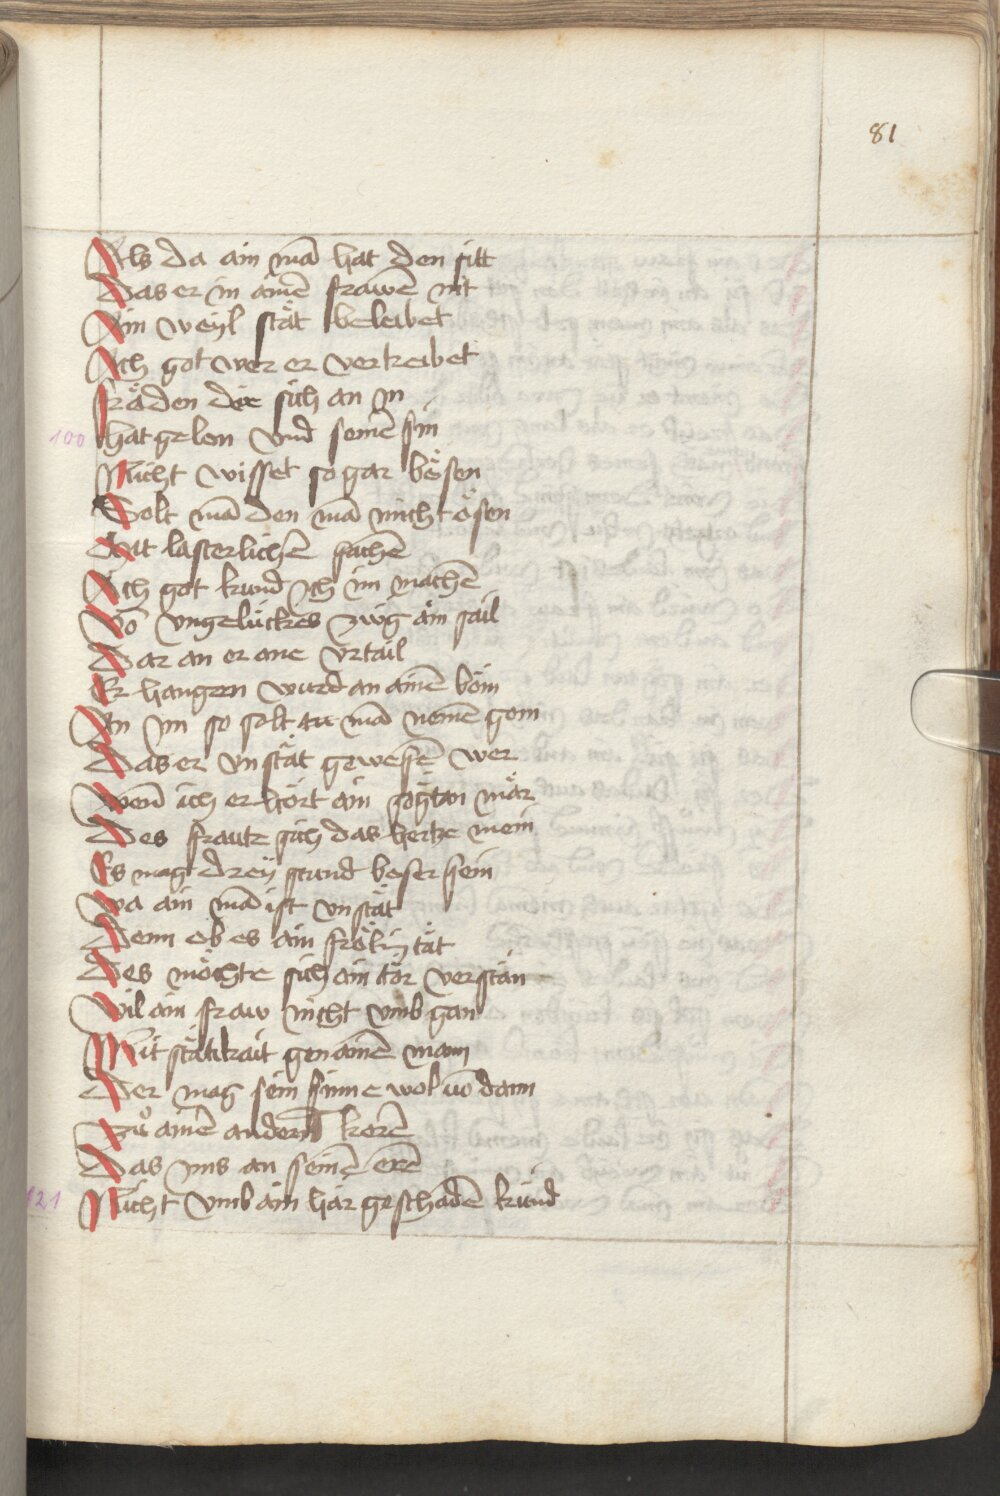 81
Als da ain mā hat den sitt
Das er in ainē frawē nit
Ain weyl stät beleibet
Ach got wer er vertreibet
fräden die sich an in
100 hat gelen vnd seinē sin
Nicht wisset so gar bösen
Solt mā den mā nicht ösen
Mit lasterlichē sachē
Ach got kund ich im machē
Vō vngelückes zwig ain sail
Dar an er ane vrtail
Er hangen wurd an ainē bom
An im so solt mā nemē gom
Das er vnstät gewesē wer
Wenn ich er hört ain sögtan mär
Des frautz sich das hertze mein
Es mag dreÿ stund besser sein
Wa ain mā ist vnstät
Denn ob es ain frölin tät
Des möchte sich ain tör verstän
Wil ain fraw nicht vmb gan
Mit stätikait gen ainē mann
Der mag sein sinne wol vō dann
Zů ainē andern kerē
Das vns an seinē erē
121 Nicht vmb ain här geschadē kund